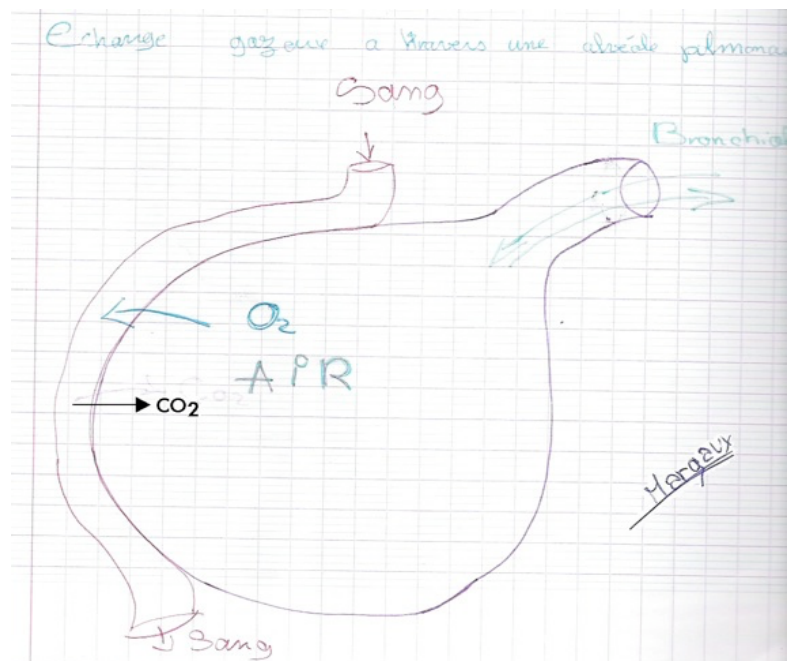 Echange gazeux a travers une alvéole pulmonai
Sang
Bronchiol
O₂
AiR
CO₂
Sang
Margaux